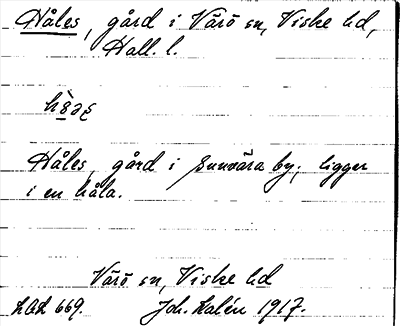 Håles, gård i Värö sn, Viske hd,
Hall. l.
Håles, gård i Sunvära by; ligger
i en håla.
Värö sn, Viske hd
669. Joh. Kalén 1917.